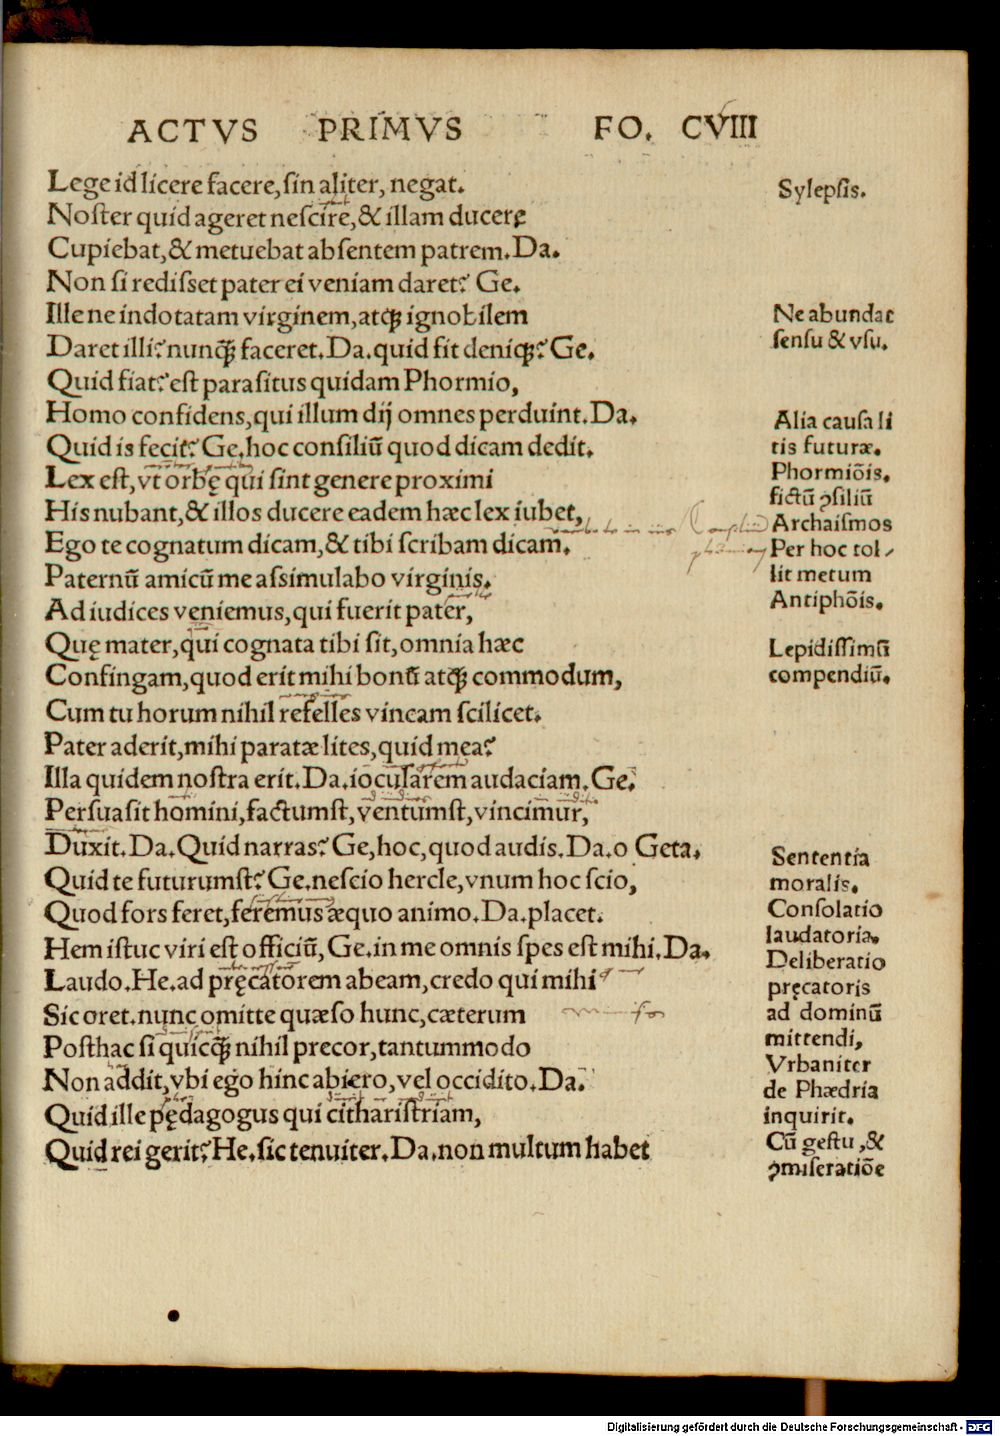 ACTVS PRIMVS FO. CVIII
Lege id licere facere, sin aliter, negat.
Noster quid ageret nescire, & illam ducere
Cupiebat, & metuebat absentem patrem. Da.
Non si redisset pater ei veniam daret? Ge.
Ille ne indotatam virginem, atqꝫ ignobilem
Daret illi? nunqꝫ̄ faceret. Da. quid fit deniqꝫ? Ge.
Quid fiat? est parasitus quidam Phormio,
Homo confidens, qui illum dij omnes perduint. Da.
Quid is fecit? Ge. hoc consiliū quod dicam dedit.
Lex est, vt orbę qui sint genere proximi
His nubant, & illos ducere eadem hæc lex iubet,
Ego te cognatum dicam, & tibi scribam dicam.
Paternū amicū me assimulabo virginis.
Ad iudices veniemus, qui fuerit pater,
Quę mater, qui cognata tibi sit, omnia hæc
Confingam, quod erit mihi bonū atqꝫ commodum,
Cum tu horum nihil refelles vincam scilicet.
Pater aderit, mihi paratæ lites, quid mea?
Illa quidem nostra erit. Da. iocularem audaciam. Ge.
Persuasit homini, factumst, ventumst, vincimur,
Duxit. Da. Quid narras? Ge, hoc, quod audis. Da. o Geta.
Quid te futurumst? Ge. nescio hercle, vnum hoc scio,
Quod fors feret, feremus æquo animo. Da. placet.
Hem istuc viri est officiū, Ge. in me omnis spes est mihi. Da.
Laudo. He. ad pręcatorem abeam, credo qui mihi
Sic oret. nunc omitte quæso hunc, cæterum
Posthac si quicqꝫ̄ nihil precor, tantummodo
Non addit, vbi ego hinc abiero, vel occidito. Da.
Quid ille pędagogus qui citharistriam,
Quid rei gerit? He. sic tenuiter. Da. non multum habet
Sylepsis.
Ne abundat
sensu & vsu.
Alia causa li
tis futuræ.
Phormiōis.
fictū ꝯsiliū
Archaismos
Per hoc tol-
lit metum
Antiphōis.
Lepidissimū
compendiū.
Sententia
moralis.
Consolatio
laudatoria.
Deliberatio
pręcatoris
ad dominū
mittendi,
Vrbaniter
de Phædria
inquirit.
Cū gestu, &
ꝯmiseratiōe
Digitalisierung gefördert durch die Deutsche Forschungsgemeinschaft - DFG